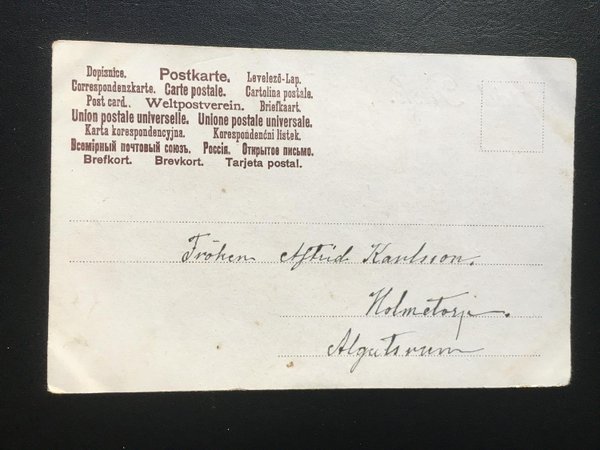 Dopisnice. Postkarte. Levelező-Lap.
Correspondenzkarte. Carte postale. Cartolina postale.
Post card. Weltpostverein. Briefkaart.
Union postale universelle. Unione postale universale.
Karta korespondencyjna. Korespondenční lístek.
Всемірный почтовый союзъ. Россія. Открытое письмо.
Brefkort. Brevkort. Tarjeta postal.
Fröken Astrid Karlsson.
Holmetorp.
Algutsrum